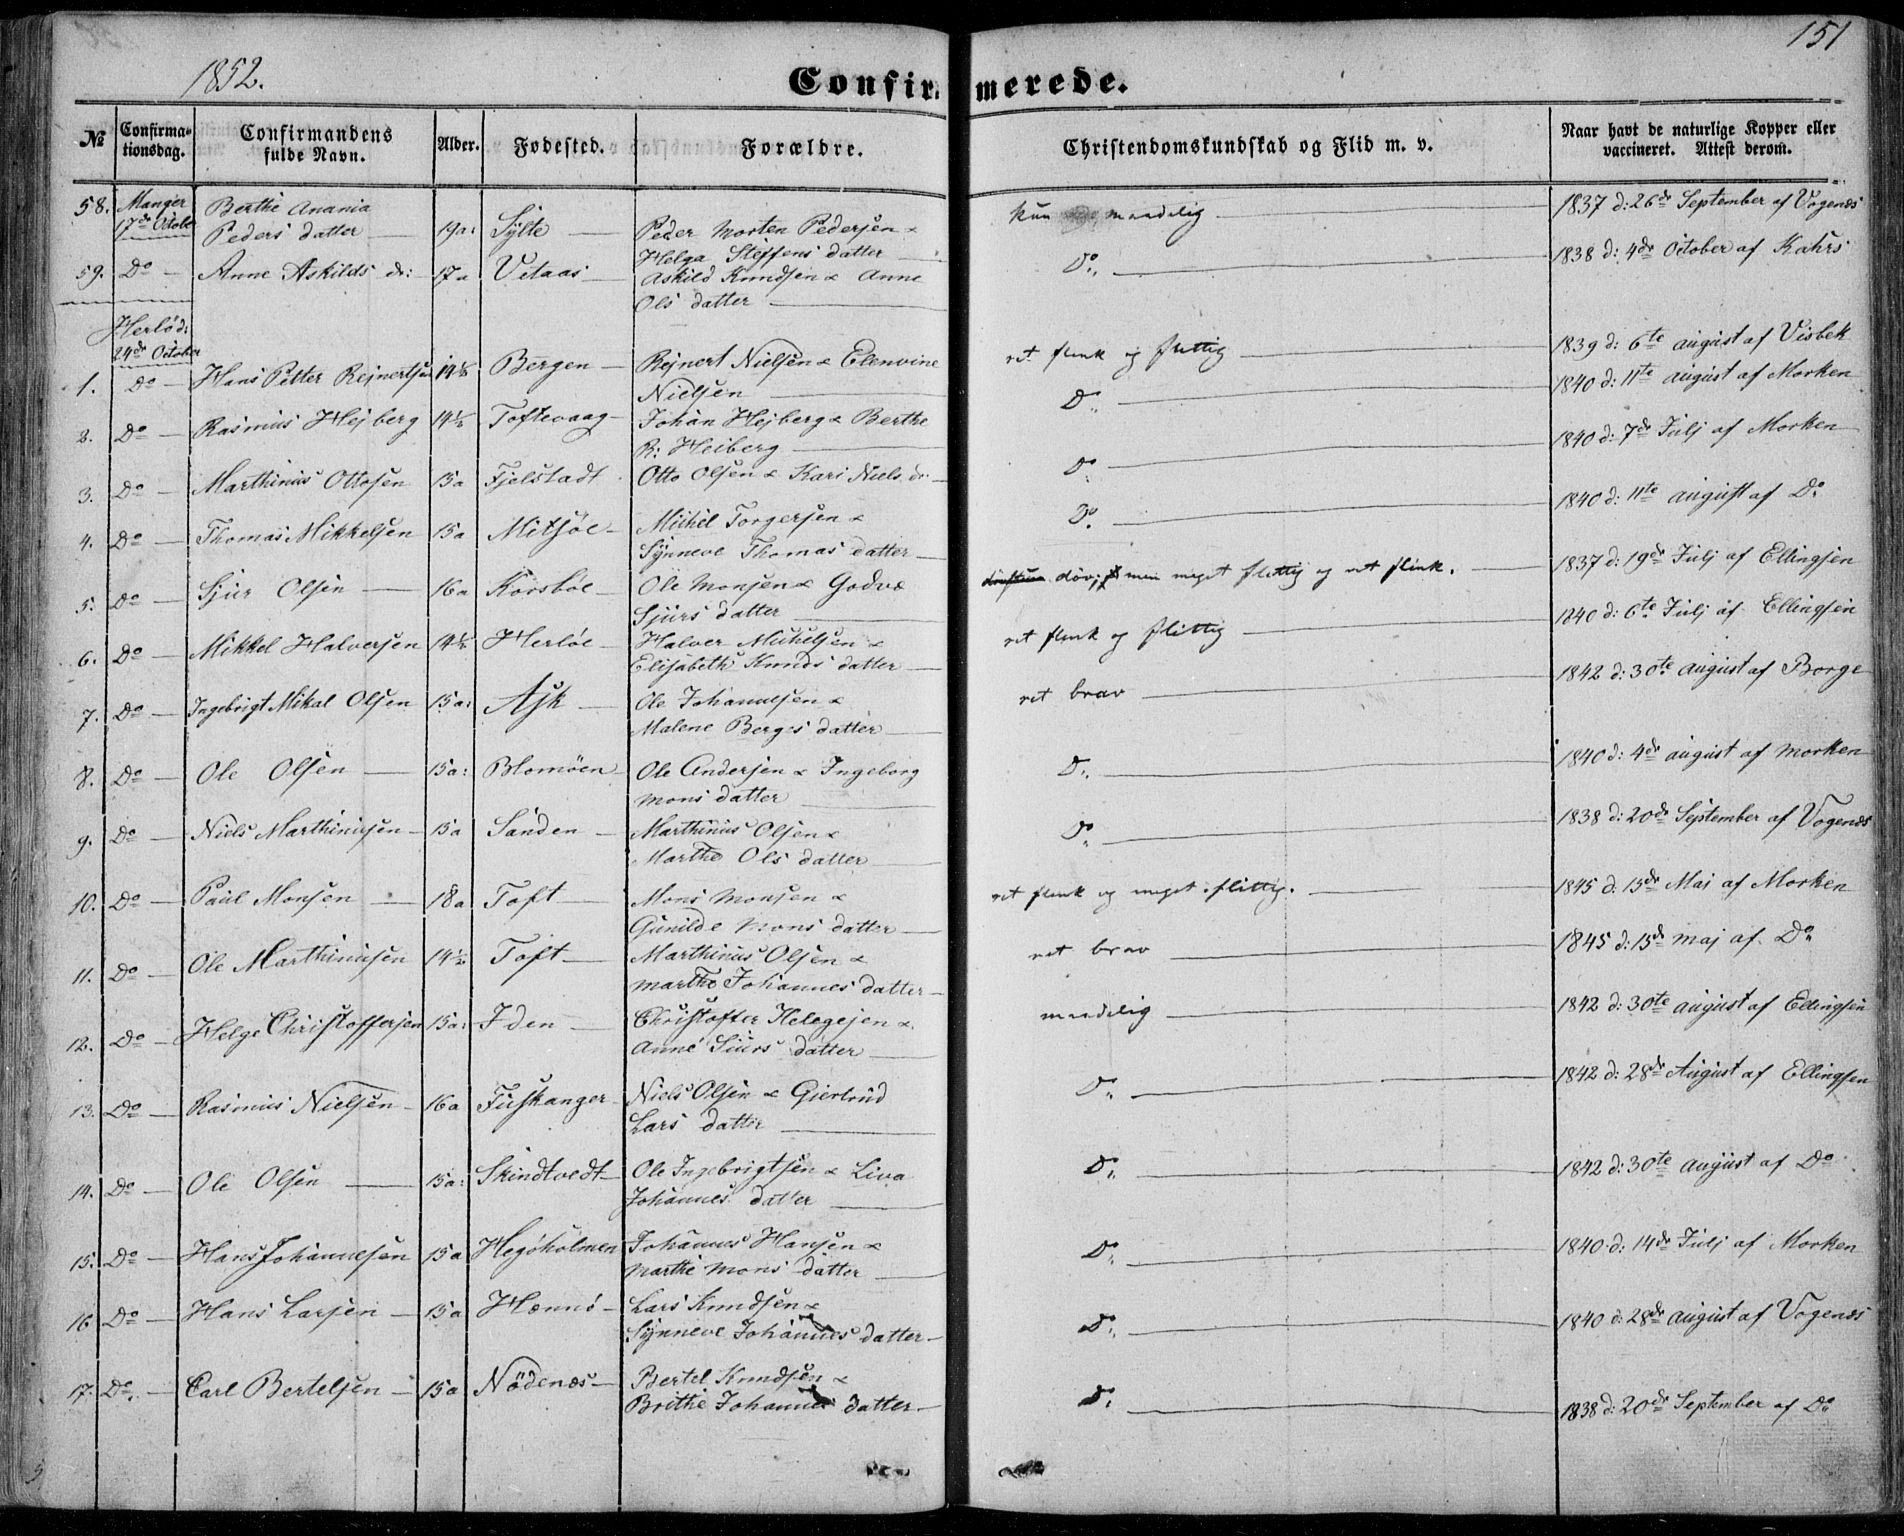 151
1852.
Confirmerede.
№
Confirma-
tionsdag.
Confirmandens
fulde Navn.
Alder.
Fødested.
Forældre.
Christendomskundskab og Flid m. v.
Naar havt de naturlige Kopper eller
vaccineret. Attest derom.
58. Manger 17de October Berthe Anania
Peders datter 19a: Sylte Peder Morten Pedersen &
Helga Steffens datter
kun maadelig
1837 d: 26de September af Vogenes
59. Do Anne Askilds dr: 17a Vetaas Askild Knudsen & Anne
Ols datter
Do
1838 d: 4de October af Kahrs
Herlø d:
24de October
1. Do Hans Petter Reinertsen 14½ Bergen Reinert Nielsen & Elenvine
Nielsen
ret flink og flittig
1839 d: 6te august af Visbek
2. Do Rasmus Hejberg 14½ Toftevaag Johan Hejberg & Berthe
R: Heiberg
Do
1840 d: 11te august af Morken
3. Do Marthinus Ottosen 15a Fjelstadt Otto Olsen & Kari Niels dr:
Do
1840 d: 7de Julj af Morken
4. Do Thomas Mikkelsen 15a Mitsøe Michel Torgersen &
Synneve Thomas datter
Do
1840 d: 11te august af Do
5. Do Sjur Olsen 16a Korsbøe Ole Monsen & Godvæ
Sjurs datter
døv, men meget flittig og ret flink.
1837 d: 19de Julj af Ellingsen
6. Do Mikkel Halversen 14½ Herløe Halver Michelsen &
Elisabeth Knuds datter
ret flink og flittig
1840 d: 6te Julj af Ellingsen
7. Do Ingebrigt Mikal Olsen 15a: Ask Ole Johannesen &
Malene Berges datter
ret brav
1842 d: 30te august af Borge
8. Do Ole Olsen 15a: Blomøen Ole Andersen & Ingeborg
Mons datter
Do
1840 d: 4de august af Morken
9. Do Niels Marthinusen 15a Sanden Marthinus Olsen &
Marthe Ols datter
Do
1838 d: 20de September af Vogenes
10. Do Paul Monsen 18a Toft Mons Monsen &
Gunilde Mons datter
ret flink og meget flittig.
1845 d. 15de Mai af Morken
11. Do Ole Marthinusen 14½ Toft Marthinus Olsen &
Marthe Johannes datter
ret brav
1845 d: 15de Maj af Do
12. Do Helge Christoffersen 15a: Iden Christoffer Helegesen &
Anne Siurs datter
maadelig
1842 d: 30te august af Ellingsen
13. Do Rasmus Nielsen 16a Fuskanger Niels Olsen & Giertrud
Lars datter
Do
1842 d: 28de August af Ellingsen
14. Do Ole Olsen 15a: Skindtvedt Ole Ingebrigtsen & Liva
Johannes datter
Do
1842 d: 30te august af Do
15. Do Hans Johannesen 15a Hegøholmen Johannes Hansen &
Marthe Mons datter
Do
1840 d: 14de Julj af Morken
16 Do Hans Larsen 15a Hænnø Lars Knudsen &
Synneve Johannes datter
Do
1840 d: 28de august af Vogenes
17. Do. Carl Bertelsen 15a Nødenæs Bertel Knudsen &
Brithe Johannes datter
Do
1838 d: 20de September af Do